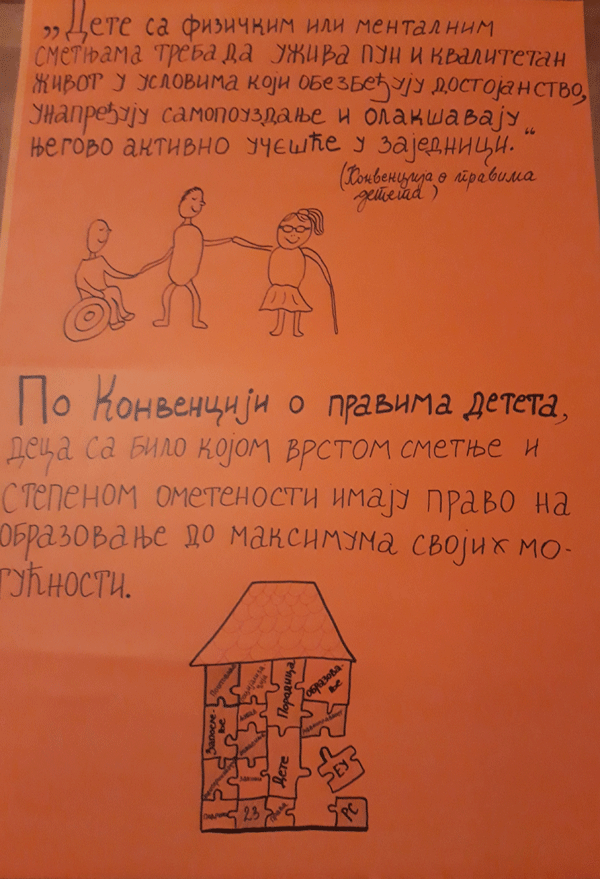 „Дете са физичким или менталним
сметњама треба да ужива пун и квалитетан
живот у условима који обезбеђују достојанство,
унапређују самопоуздање и олакшавају
његово активно учешће у заједници.“
(Конвенција о правима
детета)
По Конвенцији о правима детета,
деца са било којом врстом сметње и
степеном ометености имају право на
образовање до максимума својих мо-
гућности.
Породица
Образова-
ње
Запосле-
ње
Дете
ЕУ
23
РС